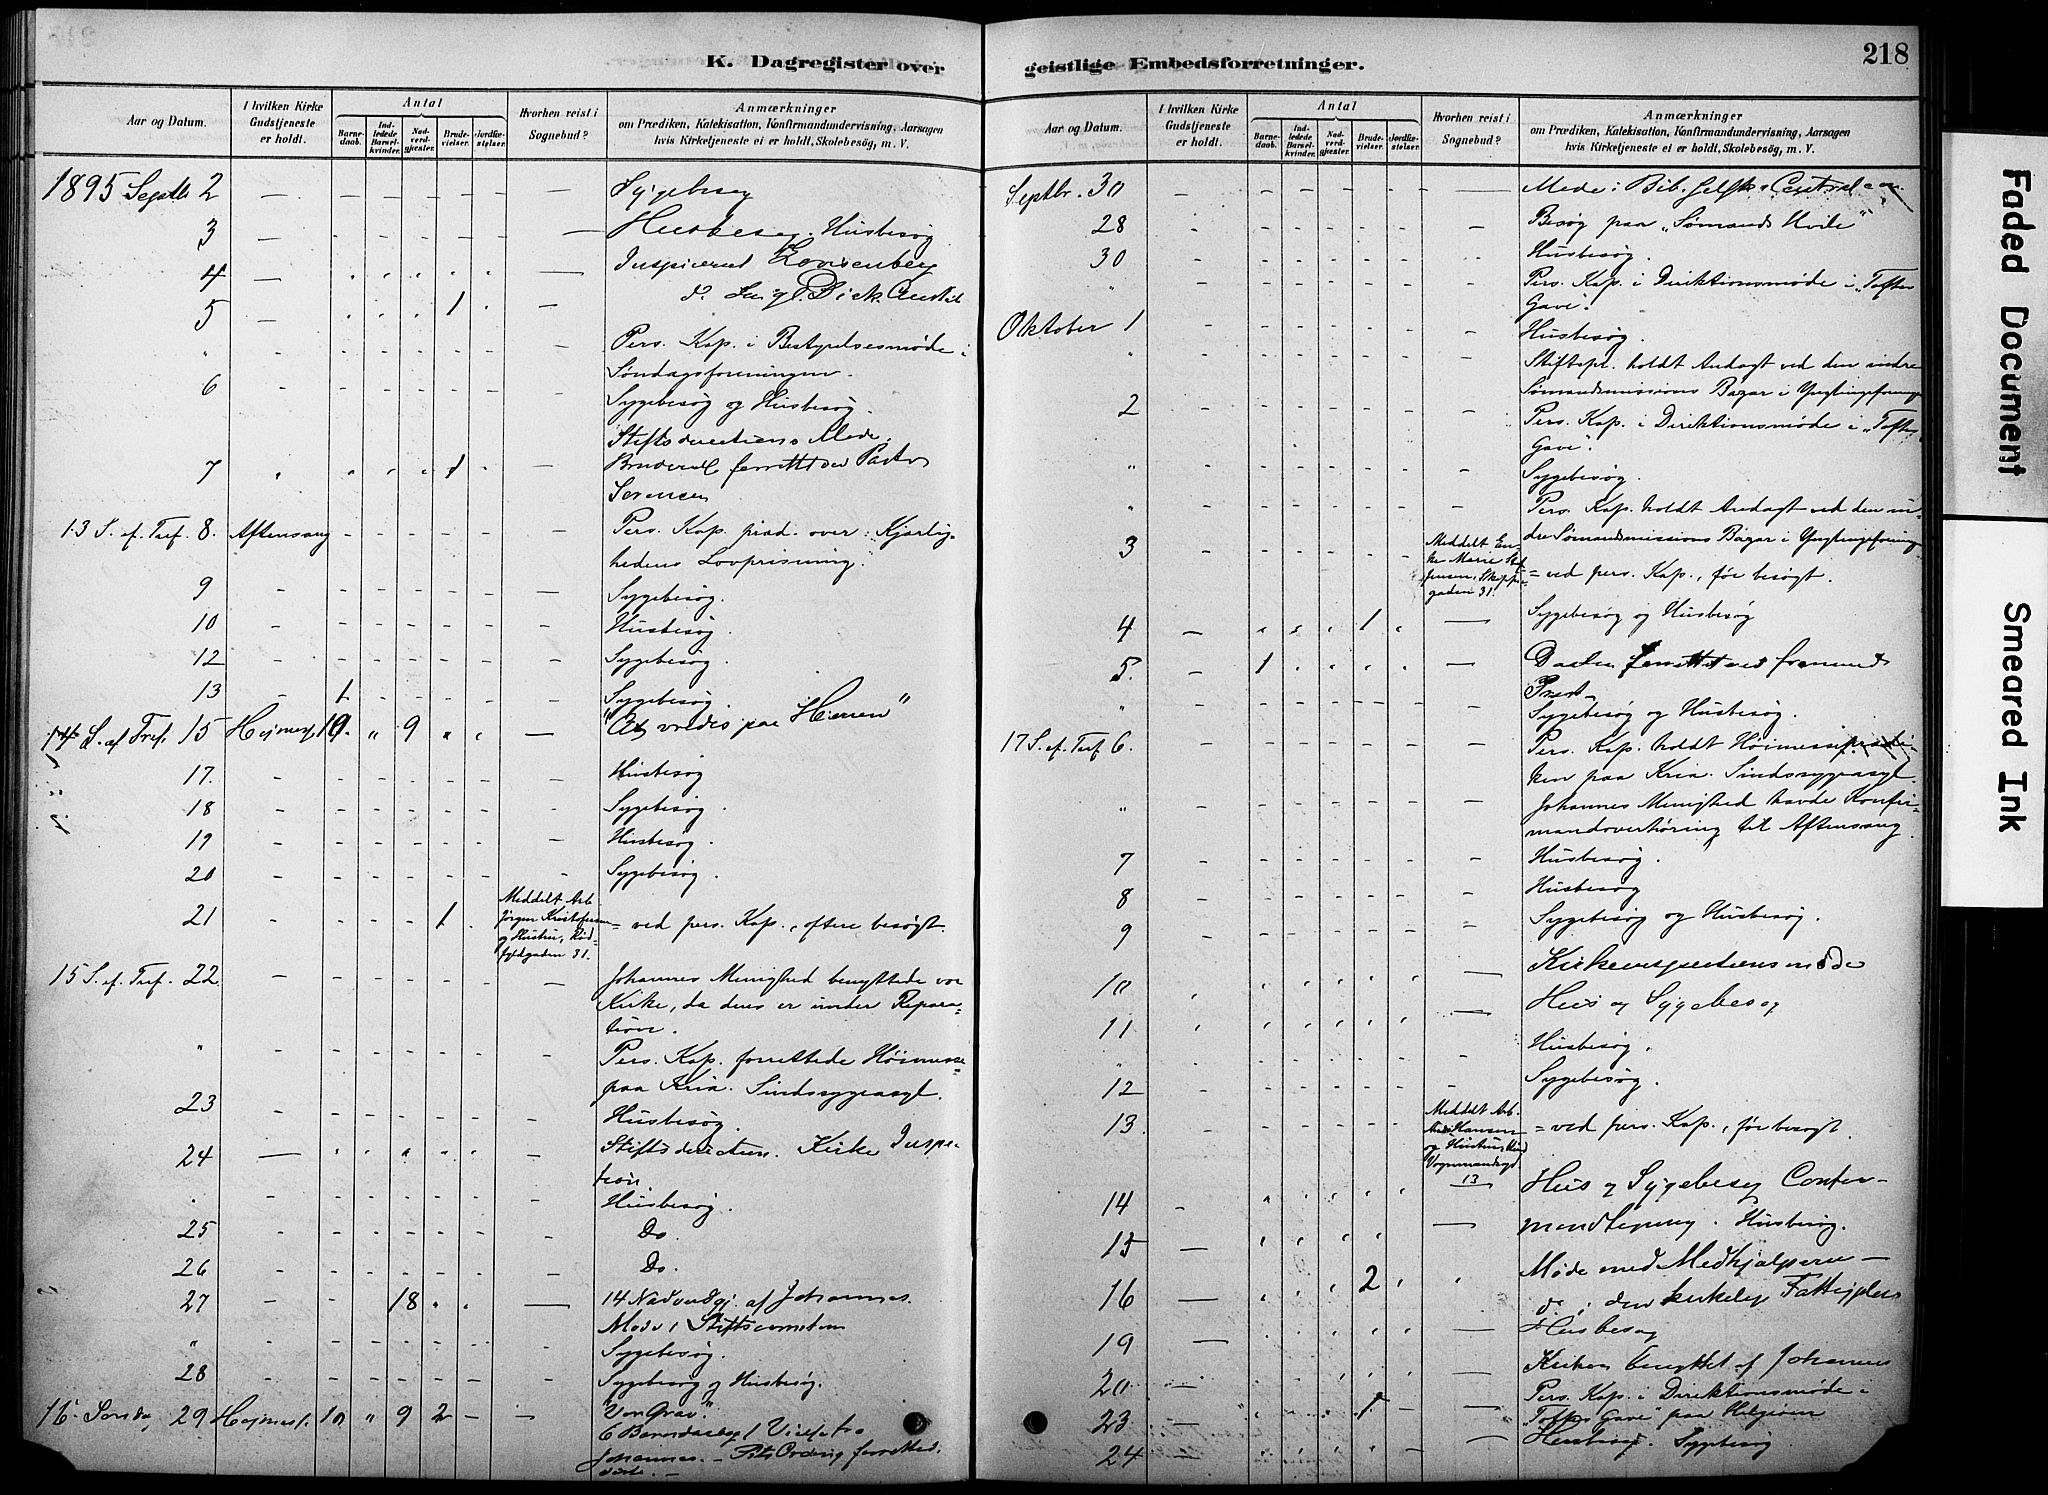 218
K. Dagregister over
geistlige Embedsforretninger.
Aar og Datum.
I hvilken Kirke Gudstjeneste er holdt.
Antal
Barnedaab.
Indledede Barselkvinder.
Nadverdgjester.
Brudevielser.
Jordfæstelser.
Hvorhen reist i Sognebud?
Anmærkninger
om Prædiken, Katekisation, Konfirmandundervisning, Aarsagen
hvis Kirketjeneste ei er holdt, Skolebesøg, m. V.
1895 Septbr 2 Sygebesøg
3 Husbesøg. Husbesøg
4 Inspiceret
5 1
" Pers. Kap. i Bestyrelsesmøde i
Søndagsforeningen.
6 Sygebesøg og Husbesøg.
Stiftsdirections Møde.
7 1 forrettet ved Pastor
Sørensen
13 S. ef. Tref. 8. Aftensang Pers. Kap. præd. over: Kjærlig-
hedens Lovprisning.
9 Sygebesøg.
10 Husbesøg.
12 Sygebesøg.
13 1 Sygebesøg.
14 S. ef. Tref. 15 Højmesse 19. " 9 "At vredes paa Herren"
17. Husbesøg
18 Sygebesøg.
19 Husbesøg.
20 Sygebesøg.
21 1 Meddelt Arb. Jørgen Kristofersen og Hustru, Rødfyldgaden 31. = ved pers. Kap., oftere besøgt.
15 S. ef. Tref. 22 Johannes Menighed benyttede vor
Kirke, da deres er under Repara-
tion.
" Pers. Kap. forrettede Høimesse
paa Kria. Sindssygeasyl.
23 Husbesøg.
24 Stiftsdirection. Kirke Inspe-
tion
Husbesøg.
25 Do.
26 Do.
27 18 14 Nadverdgj. af Johannes.
Møde i
" Sygebesøg.
28 Sygebesøg og Husbesøg.
16. Søndag 29 Højmesse 10 " 9 2 "Von Grav."
6 Barnedaab 1 Vielse fra
Johannes.
Aar og Datum.
I hvilken Kirke Gudstjeneste er holdt.
Antal
Barnedaab.
Indledede Barselkvinder.
Nadverdgjester.
Brudevielser.
Jordfæstelser.
Hvorhen reist i Sognebud?
Anmærkninger
om Prædiken, Katekisation, Konfirmandundervisning, Aarsagen
hvis Kirketjeneste ei er holdt, Skolebesøg, m. V.
Septbr. 30 Møde i Bib. Selsk.
28 Besøg paa "Sømands Hvile"
30 Husbesøg.
" Pers. Kap. i Direktionsmøde i "Toftes
Gave".
Oktober 1 Husbesøg.
" Stiftspr. holdt Andagt ved den indre
Sømandsmissions Bazar i Ynglingeforening
2 Pers. Kap. i Direktionsmøde i "Toftes
Gave".
" Sygebesøg.
" Pers. Kap. holdt Andagt ved den in-
dre Sømandsmissions Bazar i Ynglingeforening
3 Meddelt Enke Marie Steffensen, Skippergaden 31. = ved pers. Kap., før besøgt.
4 1 Sygebesøg og Husbesøg
5. 1 Daaben forrettet ved fremmed
Præst
" Sygebesøg og Husbesøg.
17 S. ef. Tref 6. Pers. Kap. holdt Høimesse
paa Kria. Sindssygeasyl.
" Johannes Menighed havde Konfir-
mandoverhøring til Aftensang.
7 Husbesøg.
8 Husbesøg
9 Sygebesøg og Husbesøg.
10 Kirkeinspectionsmøde
11 Hus og Sygebesøg
" Husbesøg.
12 Sygebesøg.
13 Meddelt Arb. Hansen og Hustru, Vognmandsgd 13 = ved pers. Kap., før besøgt.
14 Hus og Sygebesøg Confir-
15 Husbesøg.
16 2 Møde med Medhjælperne
do. i den kirkelige Fattigpleie
19 Husbesøg
20 Kirken benyttet af Johannes
23 1 Pers. Kap. i Direktionsmøde i
"Toftes Gave" paa Helgøen
24 Husbesøg. Sygebesøg
Faded Document
Smeared Ink